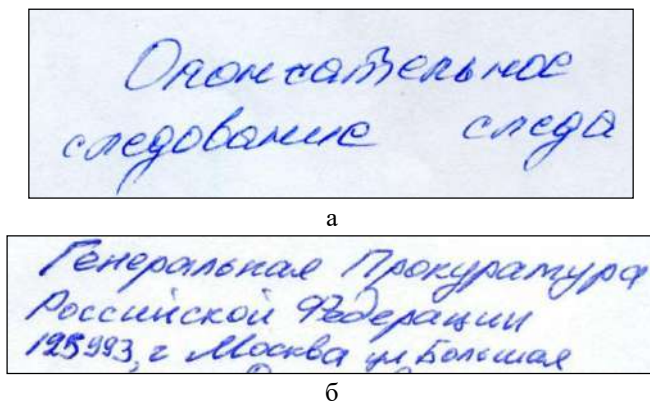 Окончательное
следование следа
а
Генеральная Прокуратура
Российской Федерации
125993, г Москва ул Большая
б